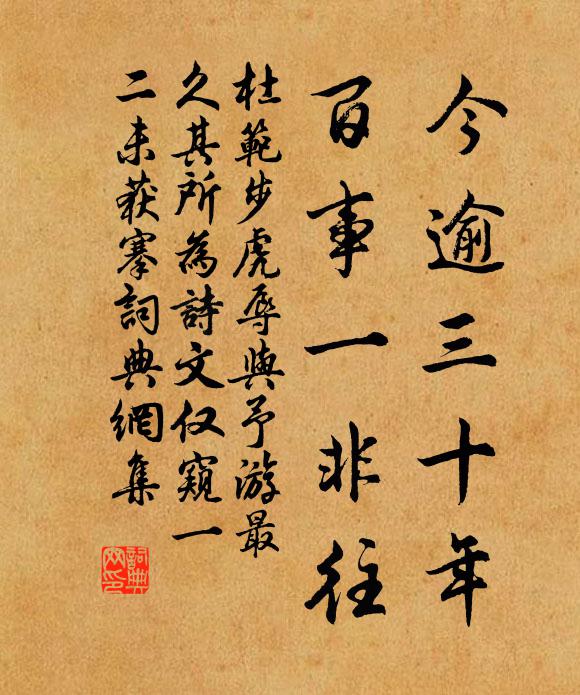 今逾三十年
百事一非往
杜範步虎辱與予游最
久其所為詩文仅窺一
二未获搴詞典網集
詞典
网印